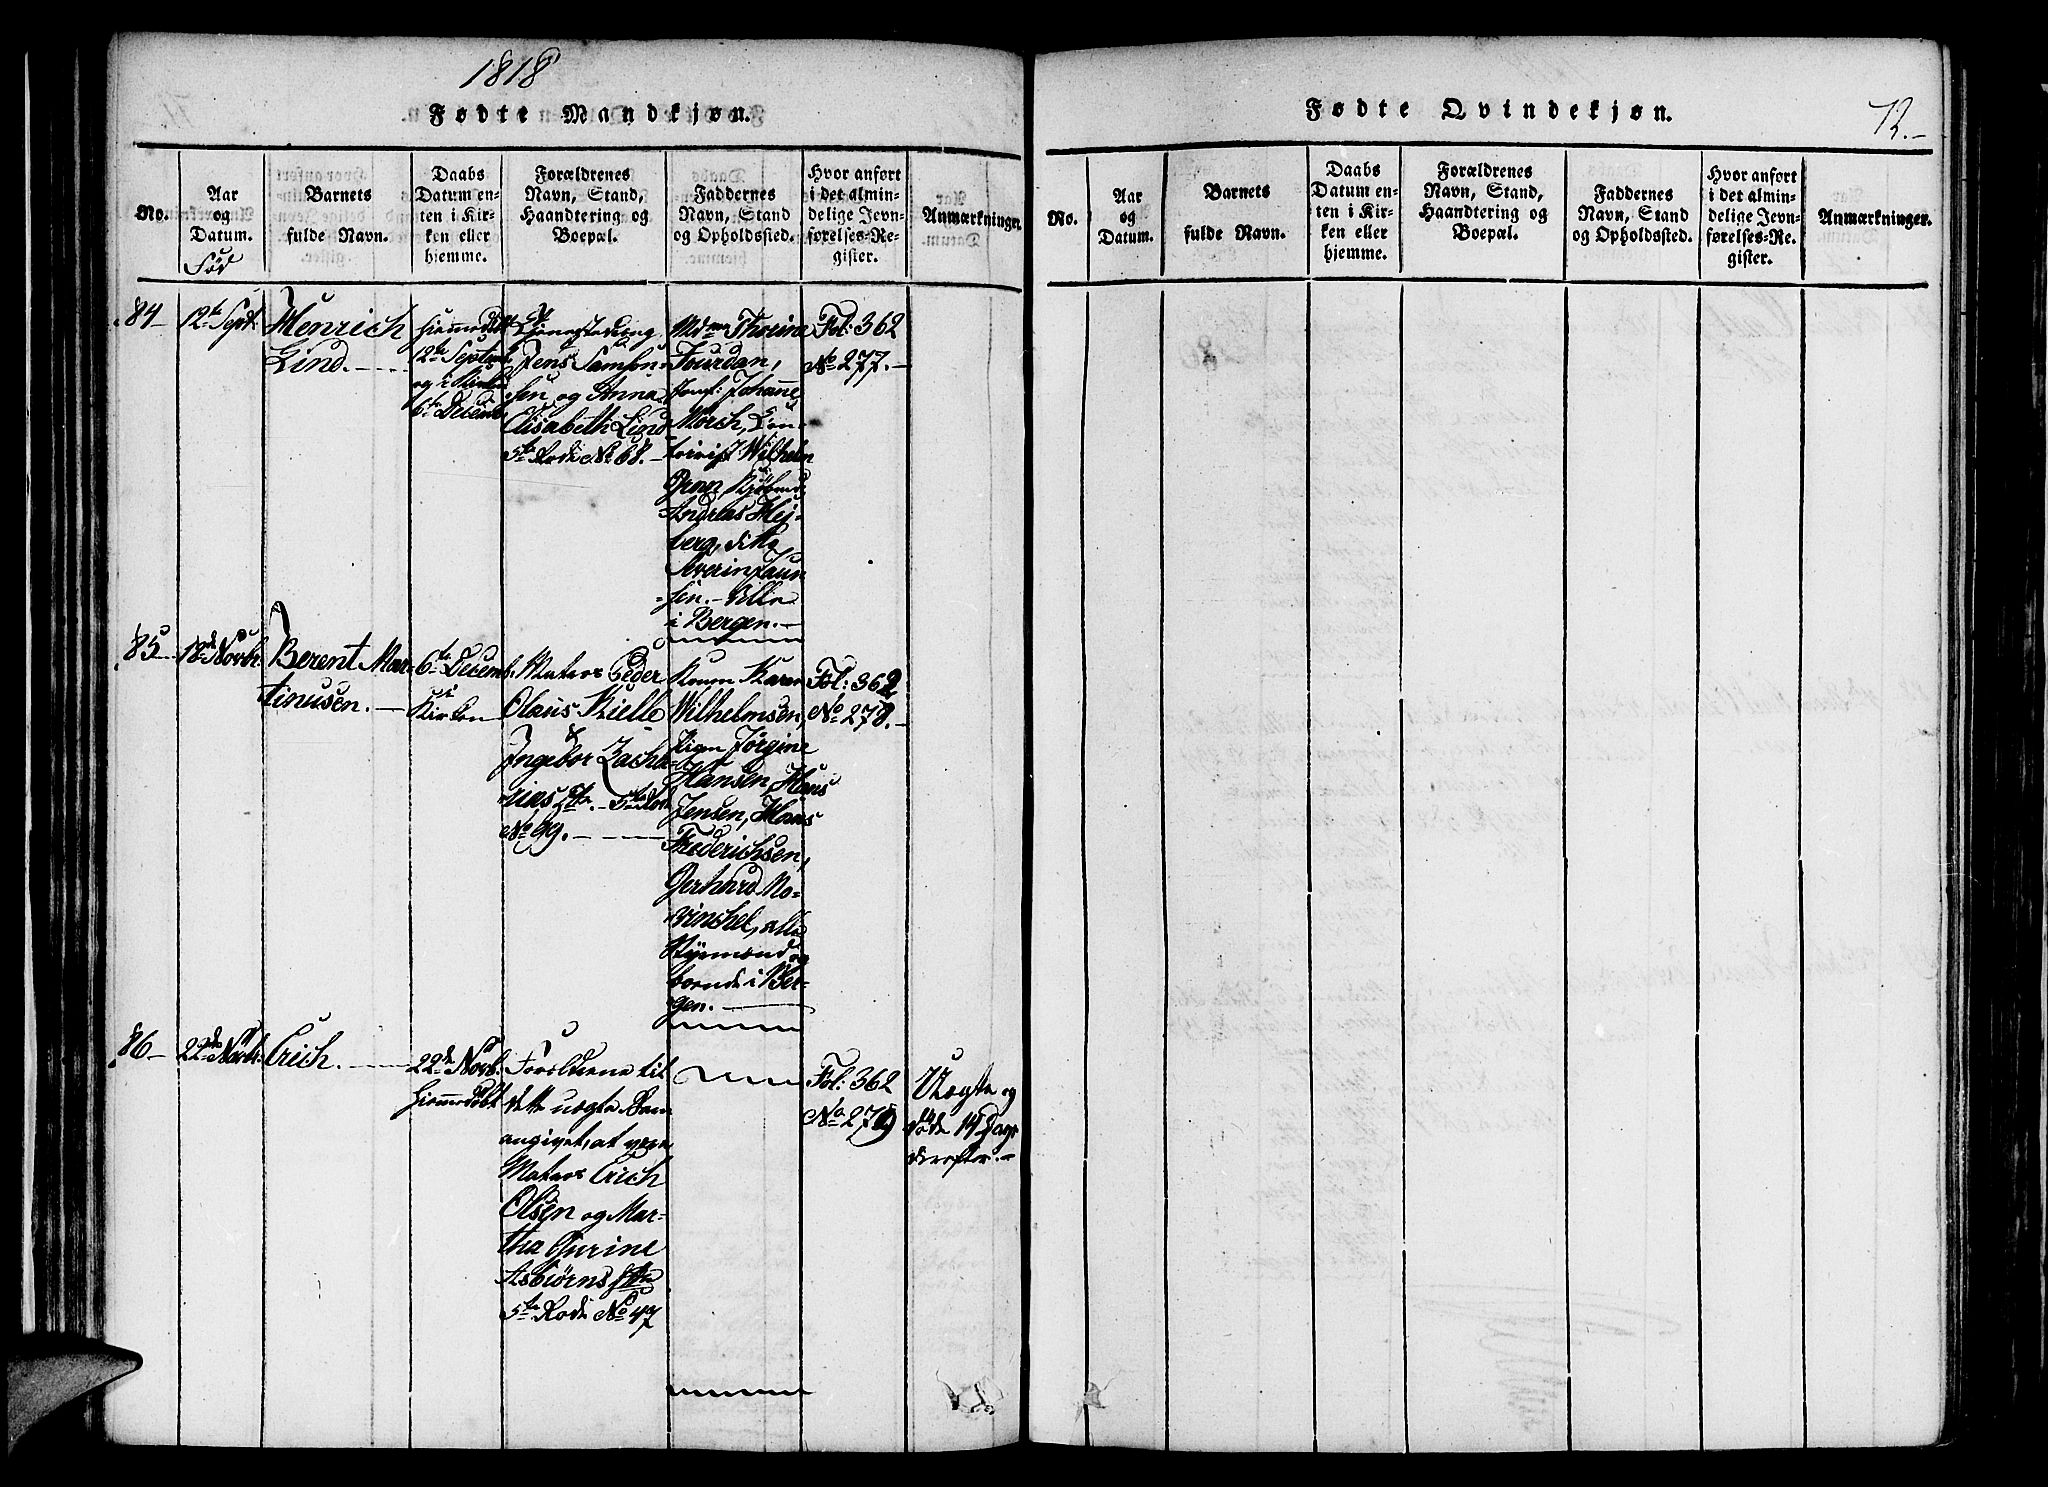 1818
Fødte Mandkjøn.
No.
Aar
og
Datum.
Fød
Barnets
fulde Navn.
Daabs
Datum en-
ten i Kir-
ken eller
hjemme.
Forældrenes
Navn, Stand,
Haandtering og
Boepæl.
Faddernes
Navn, Stand
og Opholdssted.
Hvor anført
i det almin-
delige Jevn-
førelses-Re-
gister.
Anmærkninger.
84
12te Septbr
Henrich
Lind.
hiemmedøbt
12te Septemb.
og i Kirken
6te Decemb.
Jens Samson-
sen og Anna
Elisabeth Lind
5te Rode No 68.
Mdme Thorina
Jourdan,
Jomf: Johanne
Mørch,
Wilhelm
Grøn,
Andreas Hej-
berg, ditto
Severin Jaun-
sen. alle
i Bergen.
Fol: 362
No 277.
85
18de Novbr.
Berent Mar-
tinusen.
6te Decemb.
Kirken
Matros Peder
Olaus Kielle
&
Ingebor Zacha-
rias Dtr. 5te Rode
No 99.
Konen Karen
Wilhelmsen,
Pigen Jørgine
Hansen, Hans
Jensen, Hans
Frederichsen,
Gerhard Ro-
vinchel, alle
Styrmænd og
boende i Ber-
gen.
Fol: 362
No 278.
86
22de Novbr.
Erich.
22de Novb.
hiemmedøbt
Forældrene til
dette uægte Barn
angivet, at være
Matros Erich
Olsen og Mar-
tha Gurine
Asbiørns Dtr
5te Rode No 47
Fol: 362
No 279
Uægte og
døde 14 Dage
derefter.
Fødte Qvindekjøn.
72.
No.
Aar
og
Datum.
Barnets
fulde Navn.
Daabs
Datum en-
ten i Kir-
ken eller
hjemme.
Forældrenes
Navn, Stand,
Haandtering og
Boepæl.
Faddernes
Navn, Stand
og Opholdssted.
Hvor anført
i det almin-
delige Jevn-
førelses-Re-
gister.
Anmærkninger.